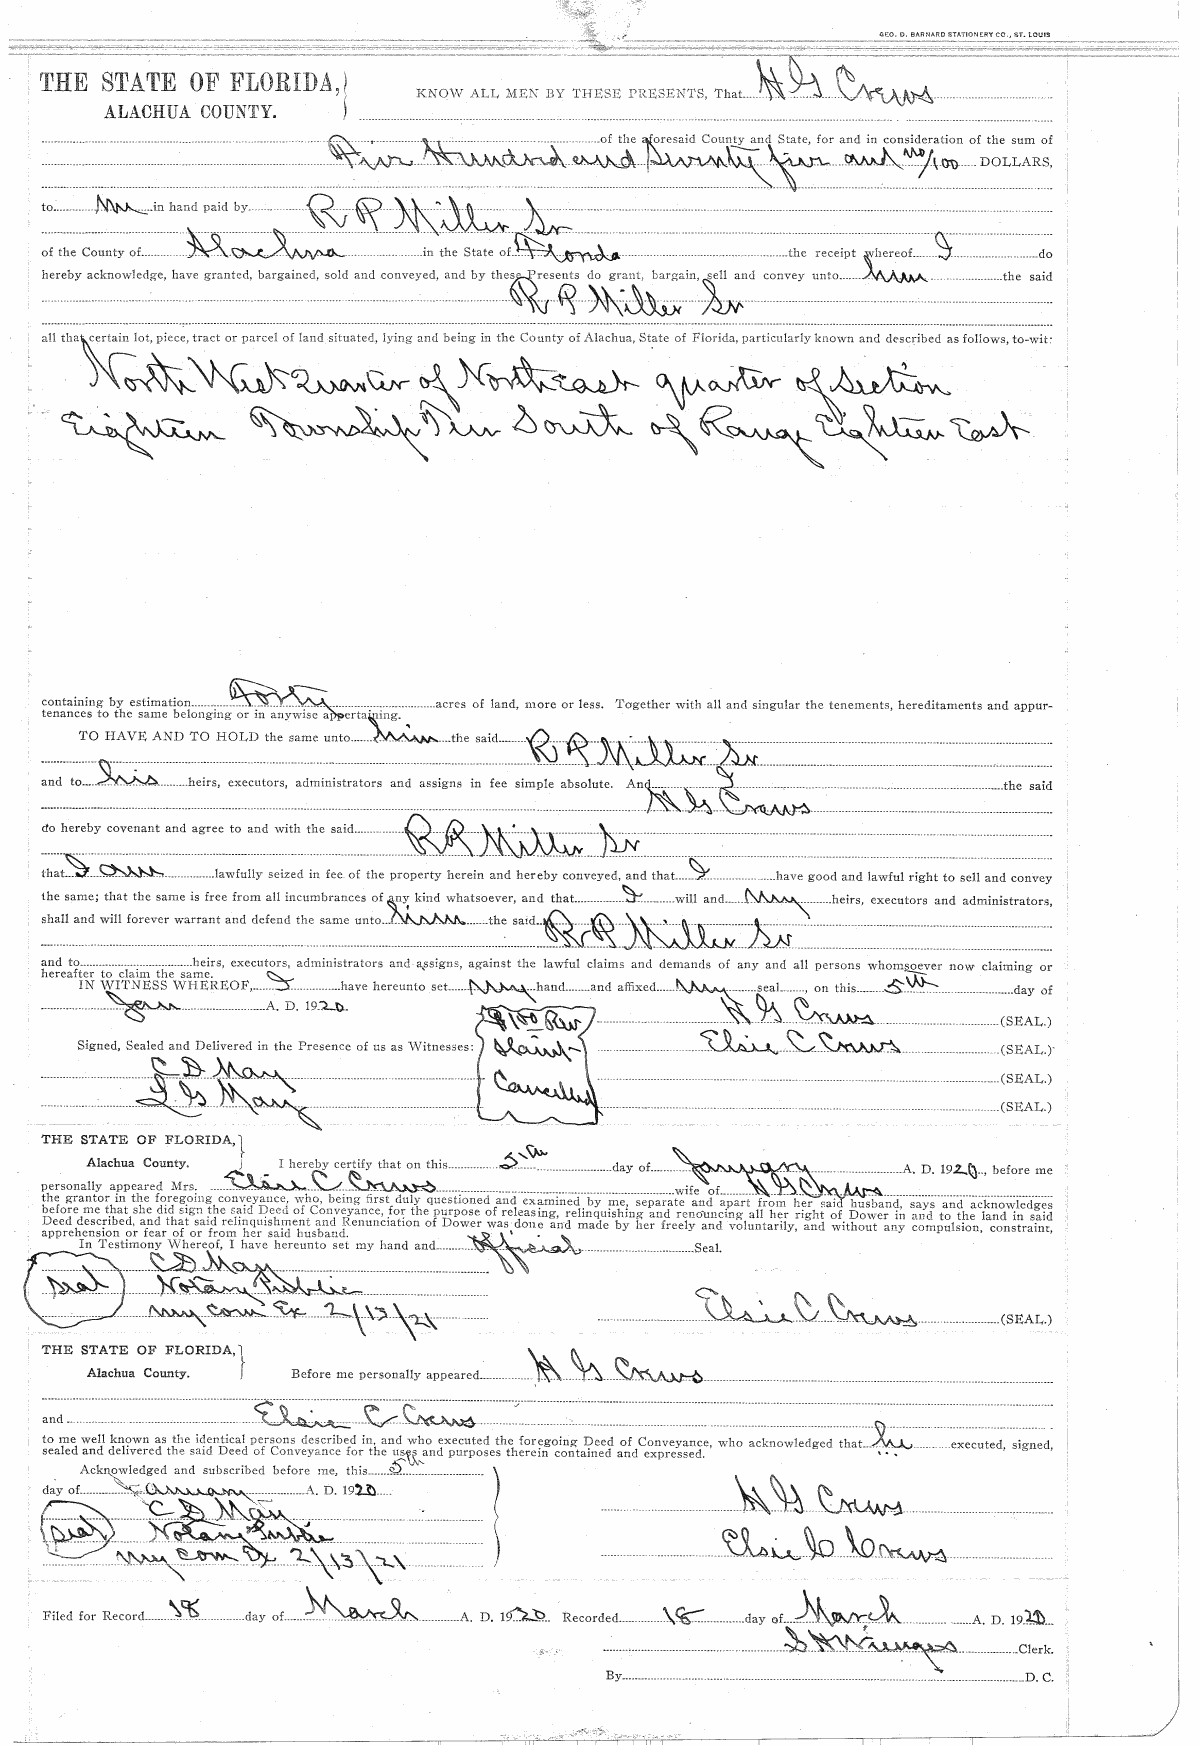 GEO. D. BARNARD STATIONERY CO., ST. LOUIS
THE STATE OF FLORIDA,
ALACHUA COUNTY.
KNOW ALL MEN BY THESE PRESENTS, That H G Crews
of the aforesaid County and State, for and in consideration of the sum of
Five Hundred and Seventy five and no/100 DOLLARS,
to me in hand paid by R P Miller Sr
of the County of Alachua in the State of Florida the receipt whereof I do
hereby acknowledge, have granted, bargained, sold and conveyed, and by these Presents do grant, bargain, sell and convey unto him the said
R P Miller Sr
all that certain lot, piece, tract or parcel of land situated, lying and being in the County of Alachua, State of Florida, particularly known and described as follows, to-wit:
North West Quarter of North East quarter of Section
Eighteen Township Ten South of Range Eighteen East
containing by estimation Forty acres of land, more or less. Together with all and singular the tenements, hereditaments and appur-
tenances to the same belonging or in anywise appertaining.
TO HAVE AND TO HOLD the same unto him the said R P Miller Sr
and to his heirs, executors, administrators and assigns in fee simple absolute. And I the said
H G Crews
do hereby covenant and agree to and with the said R P Miller Sr
that I am lawfully seized in fee of the property herein and hereby conveyed, and that I have good and lawful right to sell and convey
the same; that the same is free from all incumbrances of any kind whatsoever, and that I will and my heirs, executors and administrators,
shall and will forever warrant and defend the same unto him the said R P Miller Sr
and to heirs, executors, administrators and assigns, against the lawful claims and demands of any and all persons whomsoever now claiming or
hereafter to claim the same.
IN WITNESS WHEREOF, I have hereunto set my hand and affixed my seal, on this 5th day of
Jan A. D. 1920. H G Crews (SEAL.)
$1.00 Rev
Signed, Sealed and Delivered in the Presence of us as Witnesses: Elsie C Crews (SEAL.)
C D May (SEAL.)
Cancelled
L G May (SEAL.)
THE STATE OF FLORIDA,
Alachua County. I hereby certify that on this 5th day of January A. D. 1920, before me
personally appeared Mrs. Elsie C Crews wife of H G Crews
the grantor in the foregoing conveyance, who, being first duly questioned and examined by me, separate and apart from her said husband, says and acknowledges
before me that she did sign the said Deed of Conveyance, for the purpose of releasing, relinquishing and renouncing all her right of Dower in and to the land in said
Deed described, and that said relinquishment and Renunciation of Dower was done and made by her freely and voluntarily, and without any compulsion, constraint,
apprehension or fear of or from her said husband.
In Testimony Whereof, I have hereunto set my hand and official Seal.
C D May
Seal Notary Public
my com Ex 2/13/21 Elsie C Crews (SEAL.)
THE STATE OF FLORIDA,
Alachua County. Before me personally appeared H G Crews
and Elsie C Crews
to me well known as the identical persons described in, and who executed the foregoing Deed of Conveyance, who acknowledged that he executed, signed,
sealed and delivered the said Deed of Conveyance for the uses and purposes therein contained and expressed.
Acknowledged and subscribed before me, this 5th
day of January A. D. 1920
C D May H G Crews
Seal Notary Public
my com Ex 2/13/21 Elsie C Crews
Filed for Record 18 day of March A. D. 1920 Recorded 18 day of March A. D. 1920
S H Wienges Clerk.
By D. C.